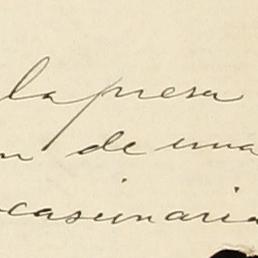 la presa
n de una
casinaria